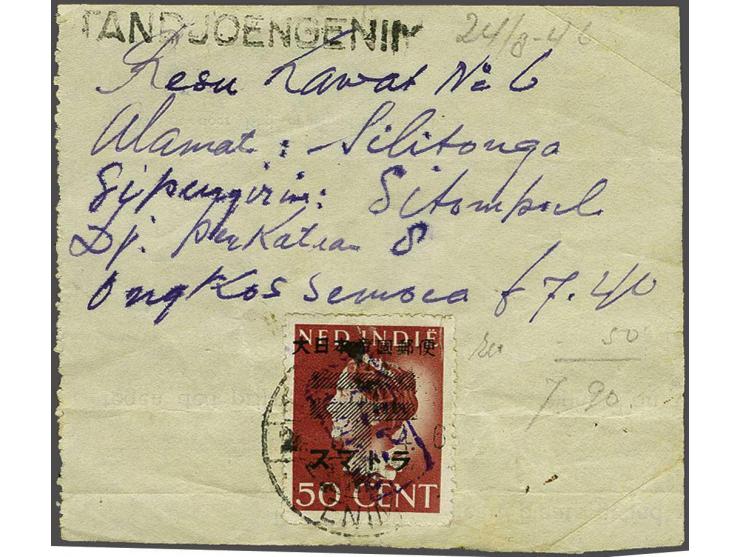 TANDJOENGENIM 24/8-46
Resu Kawat No 6
Alamat: Silitonga
Sipengirim: Sitompul
Dj. perkataan 8
Ongkos semoea f 7.40
NED. INDIË
大日本帝国郵便
50
7.90
スマトラ
50 CENT
ENIM